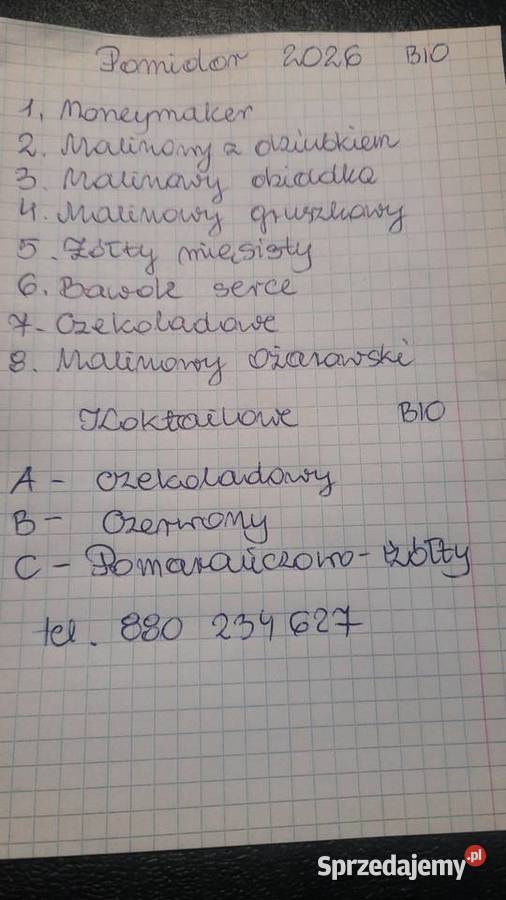 Pomidor 2026 BIO
1, Moneymaker
2. Malinowy z dziubkiem
3. Malinowy dziadka
4. Malinowy gruszkowy
5. Żółty mięsisty
6. Bawole serce
7- Czekoladowe
8. Malinowy Ożarowski
Koktailowe BIO
A - czekoladowy
B - Czerwony
C - Pomarańczowo-żółty
tel. 880 234 627
Sprzedajemy.pl